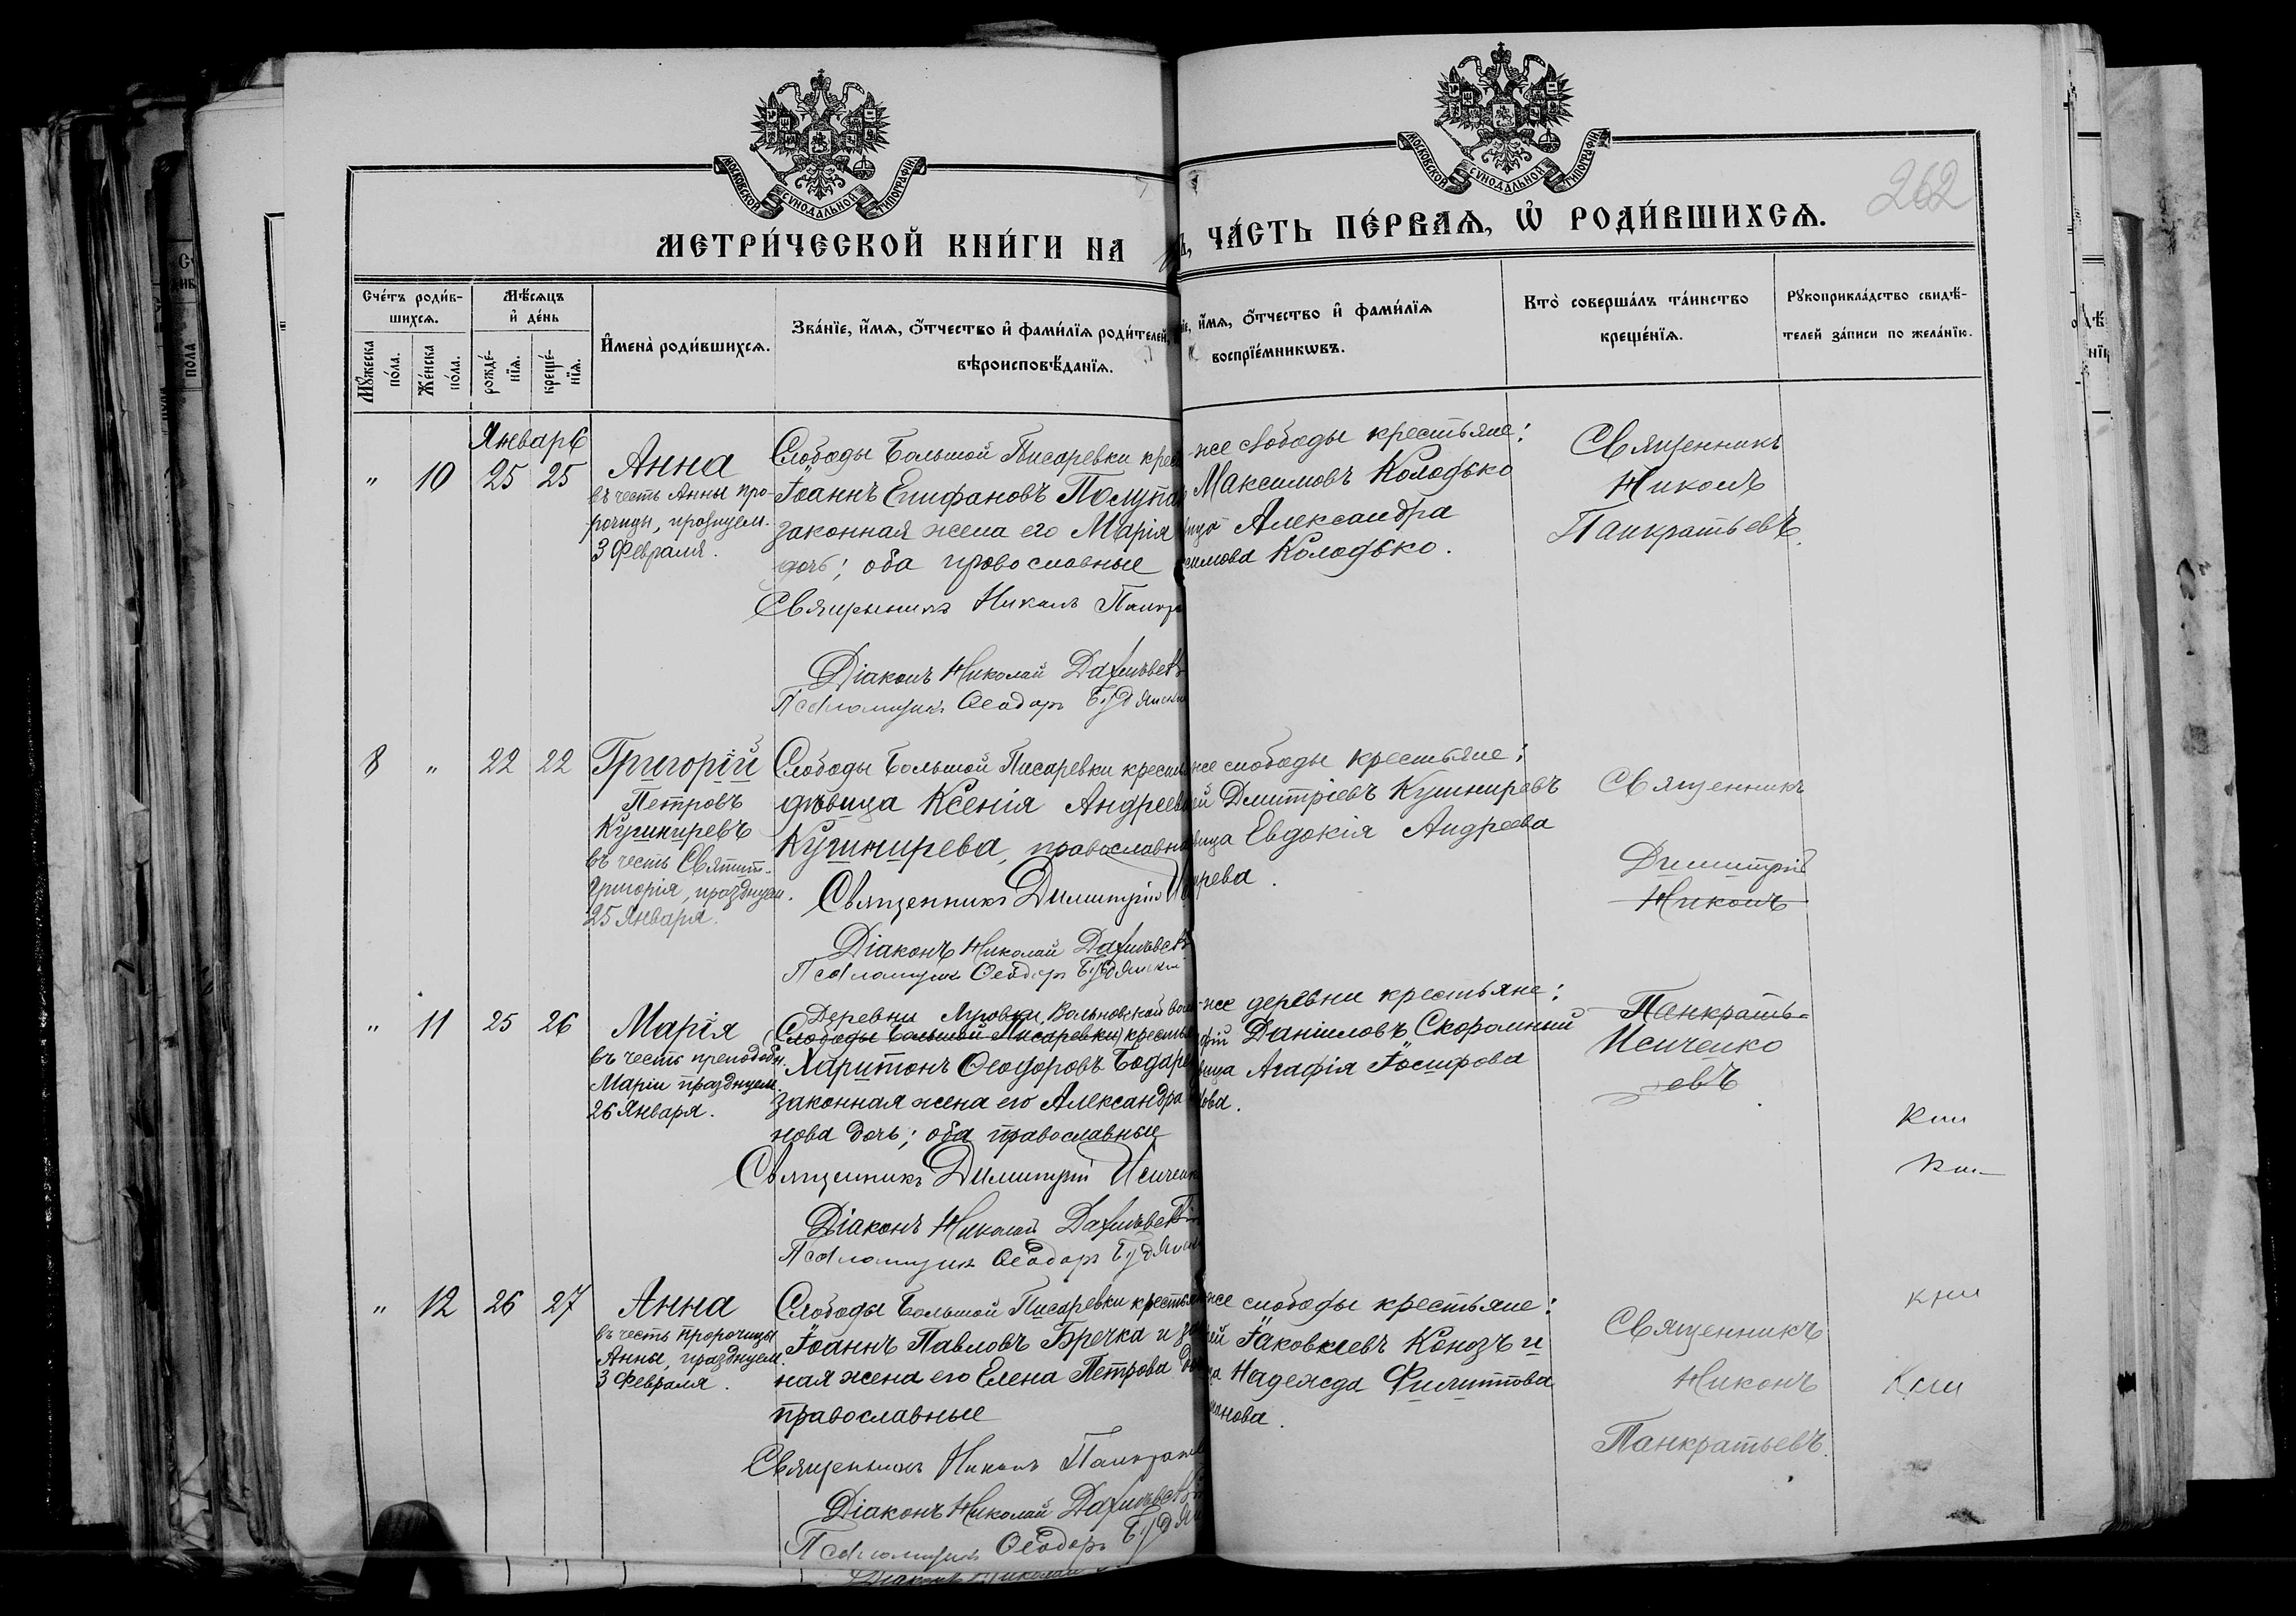 МОСКОВСКОЙ СУНОДАЛЬНОЙ ТИПОГРАФІИ
МОСКОВСКОЙ СУНОДАЛЬНОЙ ТИПОГРАФІИ
262
МЕТРИ́ЧЕСКОЙ КНИ́ГИ НА
ЧА́СТЬ ПЕ́РВАѦ, Ѡ҆ РОДИ́ВШИХСѦ.
Сче́тъ роди́в-
шихсѧ.
Мѣ́сѧцъ
и҆ де́нь
Мꙋ́жеска
по́ла.
Же́нска
по́ла.
рожде́-
нїѧ.
креще́-
нїѧ.
И҆мена̀ роди́вшихсѧ.
Зва́нїе, и҆́мѧ, ѻ҆́тчество и҆ фами́лїѧ роди́телей,
вѣроисповѣ́данїѧ.
и҆́мѧ, ѻ҆́тчество и҆ фами́лїѧ
воспрїе́мникѡвъ.
Кто̀ соверша́лъ та́инство
креще́нїѧ.
Рꙋкоприкла́дство свидѣ́-
телей за́писи по жела́нїю.
Январь
" 10 25 25
Анна
въ честь Анны про-
рочицы, празнуем.
3 Февраля.
Слободы Большой Писаревки крес
Іоаннъ Епифановъ Полупа
законная жена его Марія
дочь; оба православные
Священникъ Никонъ Панкра
Діаконъ Николай
Псаломщикъ Ѳеодоръ
же слободы крестьяне:
Максимовъ Колодько
вица Александра
симова Колодько.
Священникъ
Никонъ
Панкратьевъ.
8 " 22 22
Григорій
Петровъ
Кушниревъ
въ честь Святит.
Григорія, празднуем.
25 Января.
Слободы Большой Писаревки крестья
дѣвица Ксенія Андреев
Кушнирева, православна
Священникъ Димитрій И
Діаконъ Николай
Псаломщикъ Ѳеодоръ
же слободы крестьяне:
ей Дмитріевъ Кушниревъ
вица Евдокія Андреева
ирева.
Священникъ
Димитрій
Никонъ
Панкрать-
Исиченко
евъ
" 11 25 26
Марія
въ честь преподобн.
Маріи празднуем.
26 Января.
Деревни Вольновской вол
Слободы Большой Писаревки крестья
Харитонъ Ѳеодоровъ Бодаре
законная жена его Александра
нова дочь; оба православные
Священникъ Димитрій Исиченк
Діаконъ Николай
Псаломщикъ Ѳеодоръ
же деревни крестьяне:
фій Даніиловъ Скоромный
вица Агафія Іосифова
кова.
" 12 26 27
Анна
въ честь пророчицы
Анны, празднуем.
3 Февраля.
Слободы Большой Писаревки крестьян
Іоаннъ Павловъ Бречка и за
ная жена его Елена Петрова до
православные
Священникъ Никонъ Панкрать
Діаконъ Николай
Псаломщикъ Ѳеодоръ
же слободы крестьяне:
ей Іаковлевъ Конозъ и
ца Надежда Филиппова
манова.
Священникъ
Никонъ
Панкратьевъ.